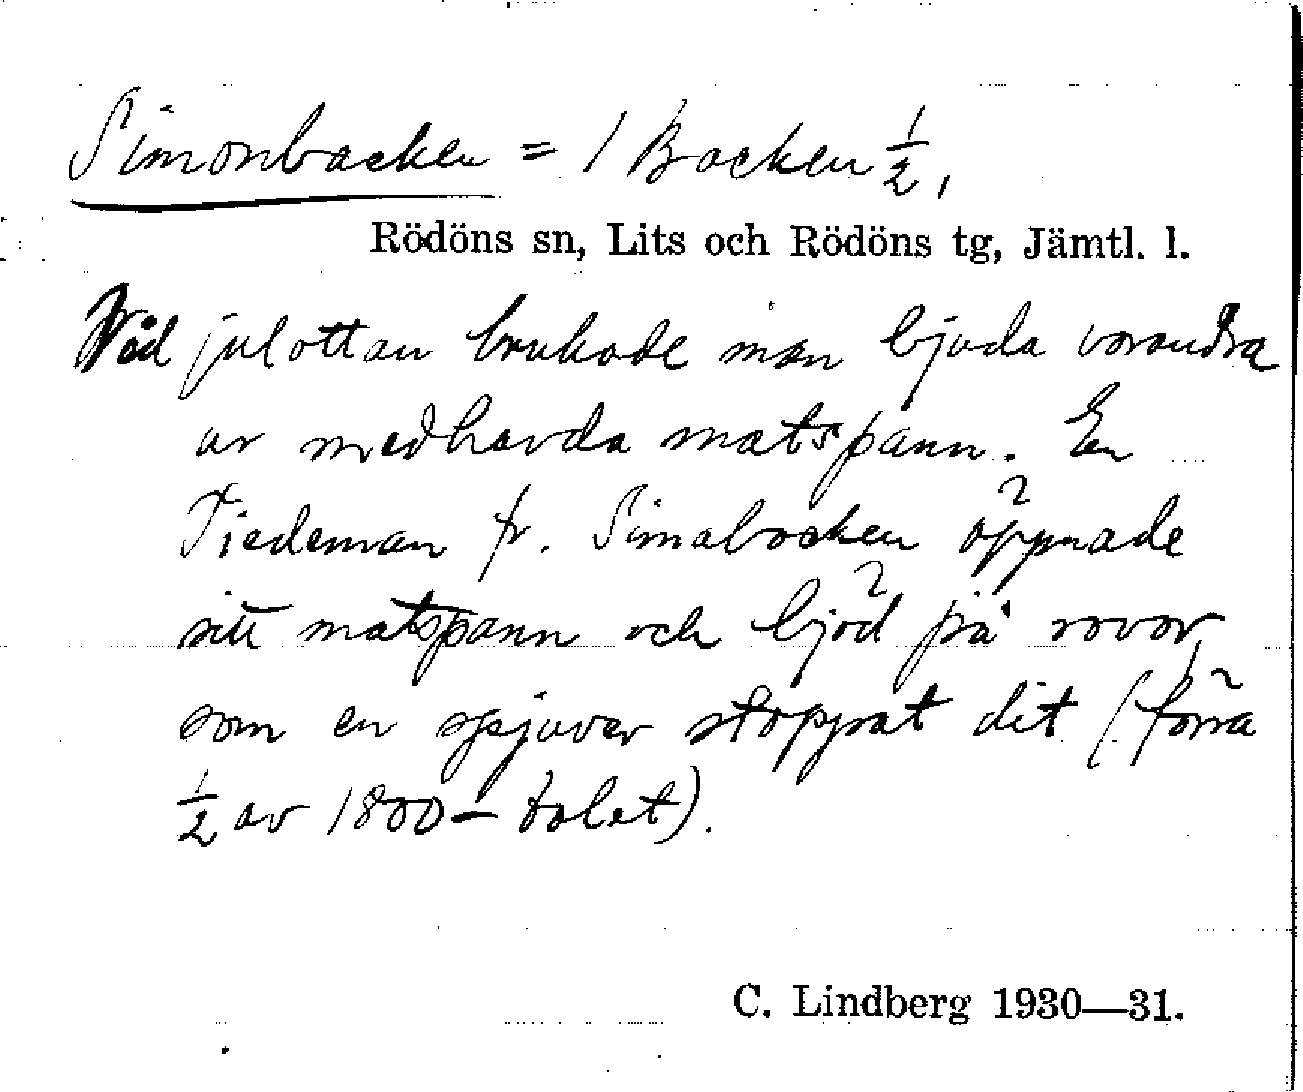 Simonbacken = 1 Backen ½,
Rödöns sn, Lits och Rödöns tg, Jämtl. l.
Vid julottan brukade man bjuda varandra
ur medhavda matspann. En
Tiedeman fr. Simabacken öppnade
sitt matspann och bjöd på rovor,
som en spjuver stoppat dit (förra
½ av 1800-talet).
C. Lindberg 1930—31.